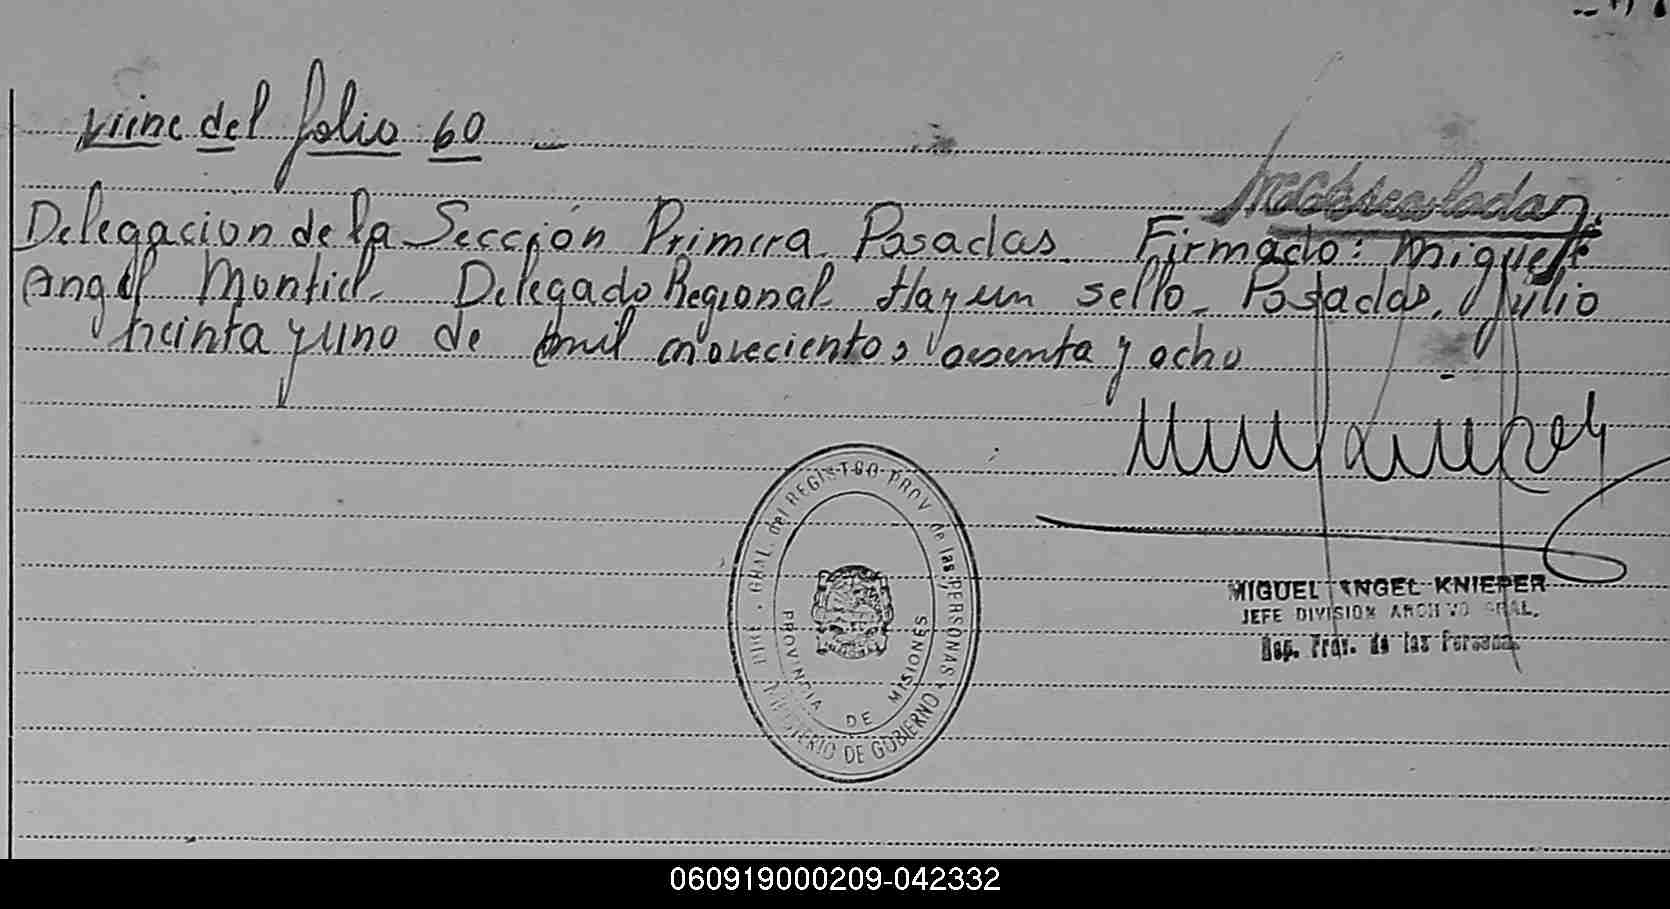 viene del folio 60
Delegacion de la Sección Primera Posadas. Firmado: Miguel
Angel Montiel. Delegado Regional. Hay un sello. Posadas, Julio
treinta y uno de mil novecientos sesenta y ocho
DIRE. GRAL. del REGISTRO PROV. de las PERSONAS
MINISTERIO DE GOBIERNO
PROVINCIA DE MISIONES
MIGUEL ANGEL KNIEPER
JEFE DIVISION ARCHIVO GRAL.
Rep. Prov. de las Personas
060919000209-042332